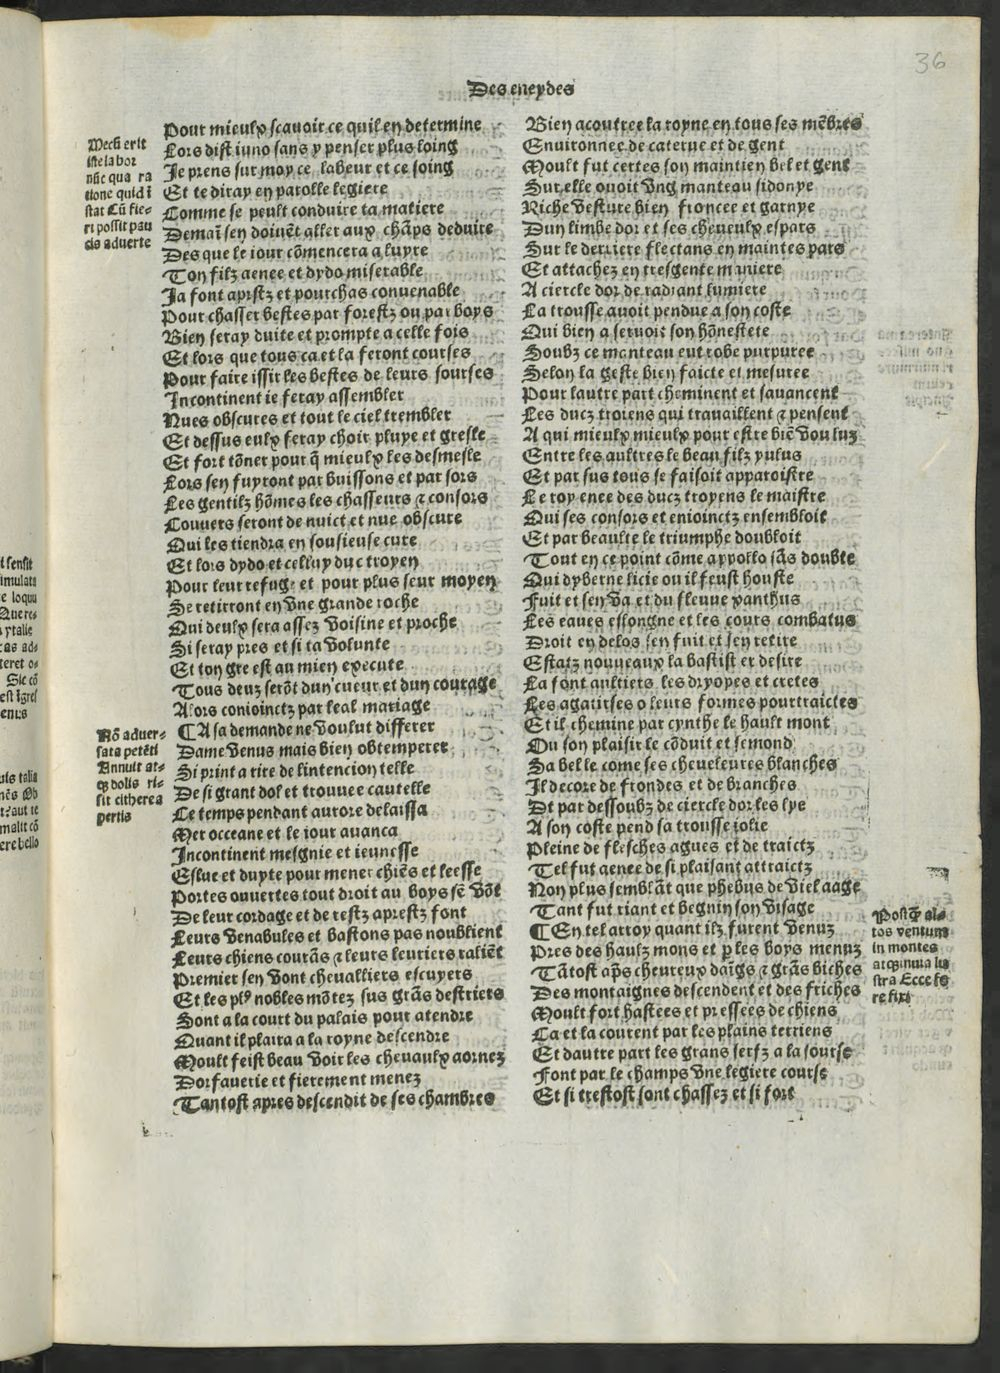 36
Des eneydes
Mecū erit
iste labor
nūc qua ra
tione quid ī
stat Cū fie-
ri possit pau
cis aduerte
Pour mieulx scauoir ce quil en determine
Lors dist iuno sans y penser plus loing
Je prens sur moy ce labeur et ce soing
Et te diray en parolle legiere
Comme se peult conduire ta matiere
Demaī sen doiuēt aller aux chāps deduire
Des que le iour cōmencera a luyre
Ton filz aenee et dydo miserable
Ja font aprestz et pourchas conuenable
Pour chasser bestes par forestz ou par boys
Bien seray duite et prompte a celle fois
Et lors que tous ca et la feront courses
Pour faire issir les bestes de leurs sourses
Incontinent ie feray assembler
Nues obscures et tout le ciel trembler
Et dessus eulx feray choir pluye et gresle
Et fort tōner pour q̄ mieulx les desmesle
Lors sen fuyront par buissons et par sors
Les gentilz hōmes les chasseurs & consors
Couuers seront de nuict et nue obscure
Qui les tiendra en sousieuse cure
Et lors dydo et celluy duc troyen
Pour leur refuge et pour plus seur moyen
Se retirront en vne grande roche
Qui deulx sera assez voisine et proche
Si seray pres et si ta volunte
Et ton gre est au mien execute
Tous deuz serōt dun cueur et dun courage
Alors conioinctz par leal mariage
Nō aduer-
sata petēti
Annuit at-
qz dolis ri-
sit citherea
pertis
¶ A sa demande ne voulut differer
Dame venus mais bien obtemperer
Si print a rire de lintencion telle
De si grant dol et trouuee cautelle
Le temps pendant aurore delaissa
Mer occeane et le iour auanca
Incontinent mesgnie et ieunesse
Eslue et duyte pour mener chiēs et leesse
Portes ouuertes tout droit au boys sē vōt
De leur cordage et de restz aprestz font
Leurs venabules et bastons pas noublient
Leurs chiens courās & leurs leuriers raliēt
Premier sen vont cheualliers escuyers
Et les pl⁹ nobles mōtez sus grās destriers
Sont a la court du palais pour atendre
Quant il plaira a la royne descendre
Moult feist beau voir les cheuaulx aornez
Dorfauerie et fierement menez
Tantost apres descendit de ses chambres
Bien acoutree la royne en tous ses mēbres
Enuironnee de caterue et de gent
Moult fut certes son maintien bel et gent
Sur elle auoit vng manteau sidonye
Riche vesture bien froncee et garnye
Dun limbe dor et ses cheueulx espars
Sur le derriere flectans en maintes pars
Et attachez en tresgente maniere
A ciercle dor de radiant lumiere
La trousse auoit pendue a son coste
Qui bien a seruoit son hōnestete
Soubz ce manteau eut robe purpuree
Selon la geste bien faicte et mesuree
Pour lautre part cheminent et sauancent
Les ducz troiens qui trauaillent & pensent
A qui mieulx mieulx pour estre biē vouluz
Entre les aultres le beau filz yulus
Et par sus tous se faisoit apparoistre
Le roy enee des ducz troyens le maistre
Qui ses consors et enioinctz ensembloit
Et par beaulte le triumphe doubloit
Tout en ce point cōme appollo sās doubte
Qui dyberne licie ou il feust houste
Fuit et sen va et du fleuue xanthus
Les eaues eslongne et les cours combatus
Droit en delos sen fuit et sen retire
Estatz nouueaux la bastist et desire
La font aultiers les dryopes et cretes
Les agatirses o leurs formes pourtraictes
Et il chemine par cynthe le hault mont
Ou son plaisir le cōduit et semond
Sa belle come ses cheueleures blanches
Il decore de frondes et de branches
Et par dessoubz de ciercle dor les lye
A son coste pend sa trousse iolie
Pleine de flesches agues et de traictz
Tel fut aenee de si plaisant attraictz
Non plus semblāt que phebus de viel aage
Tant fut riant et begnin son visage
¶ En tel arroy quant ilz furent venuz
Pres des haulz mons et p̱ les boys menuz
Tātost ap̄s cheureux daīgs & grās biches
Des montaignes descendent et des friches
Moult fort hastees et pressees de chiens
Ca et la courent par les plains terriens
Et dautre part les grans serfz a la sourse
Font par le champs vne legiere course
Et si trestost sont chassez et si fort
Postq̄ al-
tos ventum
in montes
atqz inuia lu
stra Ecce fe
re